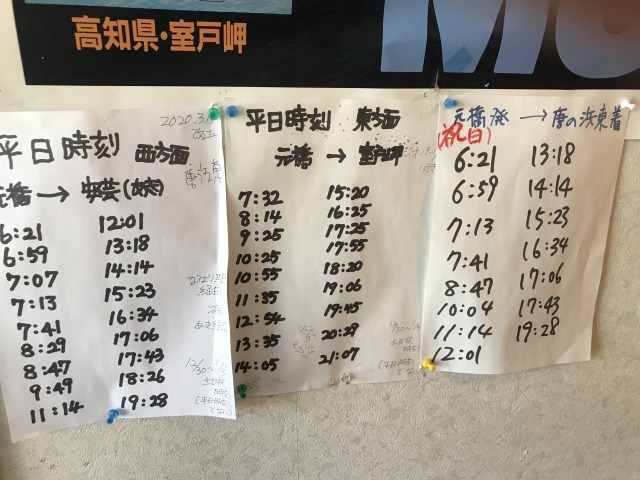 高知県・室戸岬
2020.3.
平日時刻 西方面
元橋 → 安芸
6:21 12:01
6:59 13:18
7:07 14:14
7:13 15:23
7:41 16:34
8:29 17:06
8:47 17:43
9:49 18:26
11:14 19:28
平日時刻 東方面
元橋 → 室戸岬
7:32 15:20
8:14 16:25
9:25 17:25
10:25 17:55
10:55 18:20
11:35 19:06
12:54 19:45
13:35 20:28
14:05 21:07
元橋発 → 唐の浜東着
(祝日)
6:21 13:18
6:59 14:14
7:13 15:23
7:41 16:34
8:47 17:06
10:04 17:43
11:14 19:28
12:01